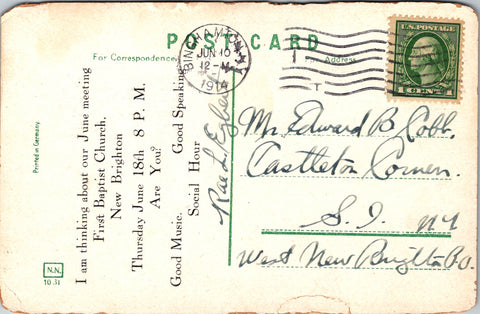 POST CARD
For Correspondence
For Address
BINGHAMTON, N.Y.
JUN 10
12-M
1914
T
U.S. POSTAGE
1 CENT 1
Printed in Germany
N.N.
10 31
I am thinking about our June meeting
First Baptist Church,
New Brighton
Thursday June 18th 8 P. M.
Are You?
Good Music. Good Speaking
Social Hour
Rae L.
Mr. Edward B. Cobb.
Castleton Corners.
S. I. NY
West New Brighton P.O.